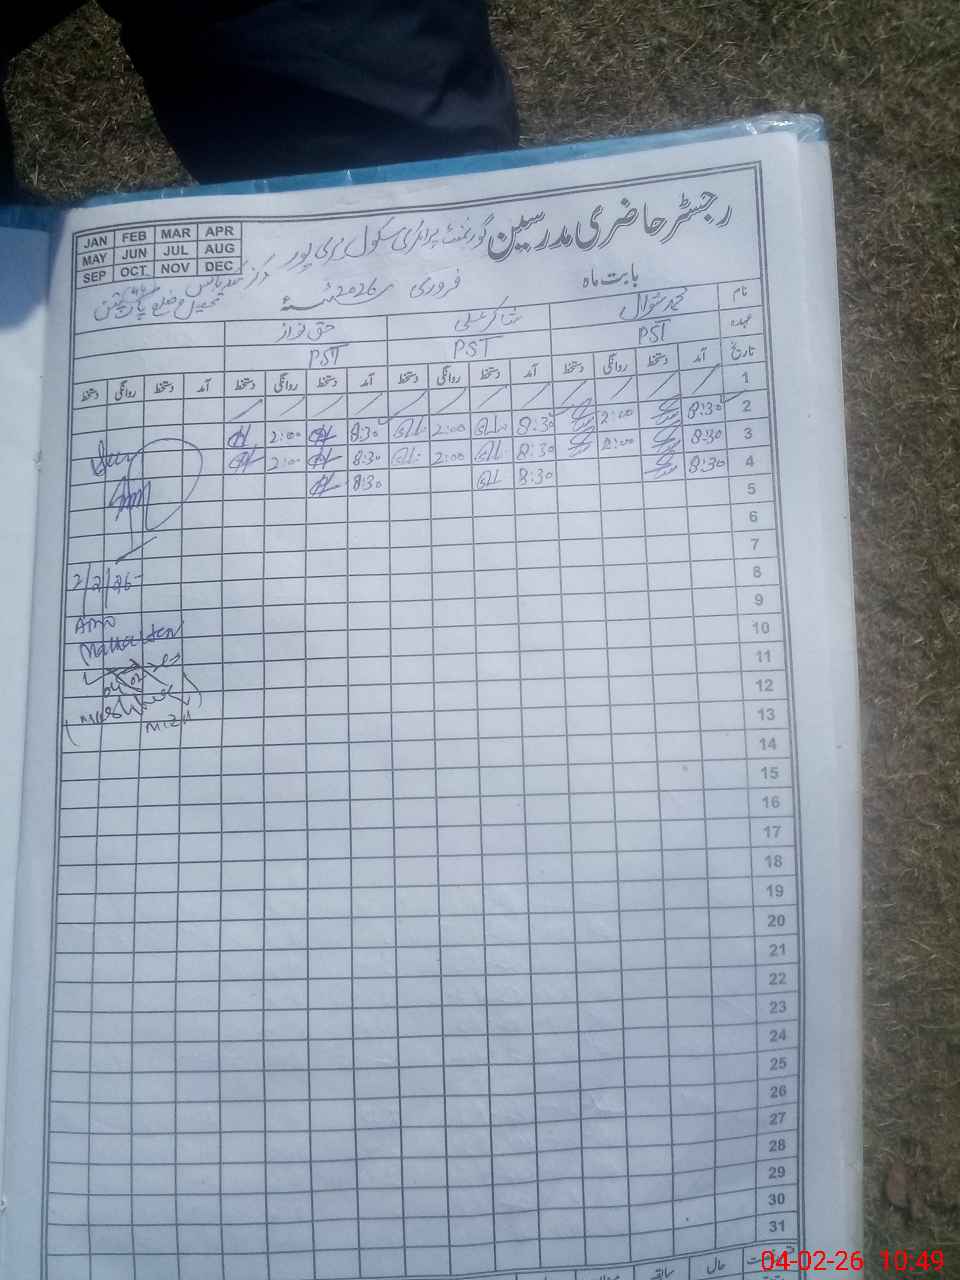 رجسٹر حاضری مدرسین گورنمنٹ پرائمری سکول
JAN FEB MAR APR
MAY JUN JUL AUG
SEP OCT NOV DEC
بابت ماہ فروری 2026ء
تحصیل و ضلع پاکپتن
نام شاکر علی حق نواز
عہدہ PST PST PST
تاریخ آمد دستخط روانگی دستخط آمد دستخط روانگی دستخط آمد دستخط روانگی دستخط آمد دستخط روانگی دستخط
1
2 8:30 2:00 8:30 2:00 8:30 2:00
3 8:30 2:00 8:30 2:00 8:30 2:00
4 8:30 8:30 8:30
5
6
7
8
9
10
11
12
13
14
15
16
17
18
19
20
21
22
23
24
25
26
27
28
29
30
31
2/2/26
حال سابقہ
04-02-26 10:49